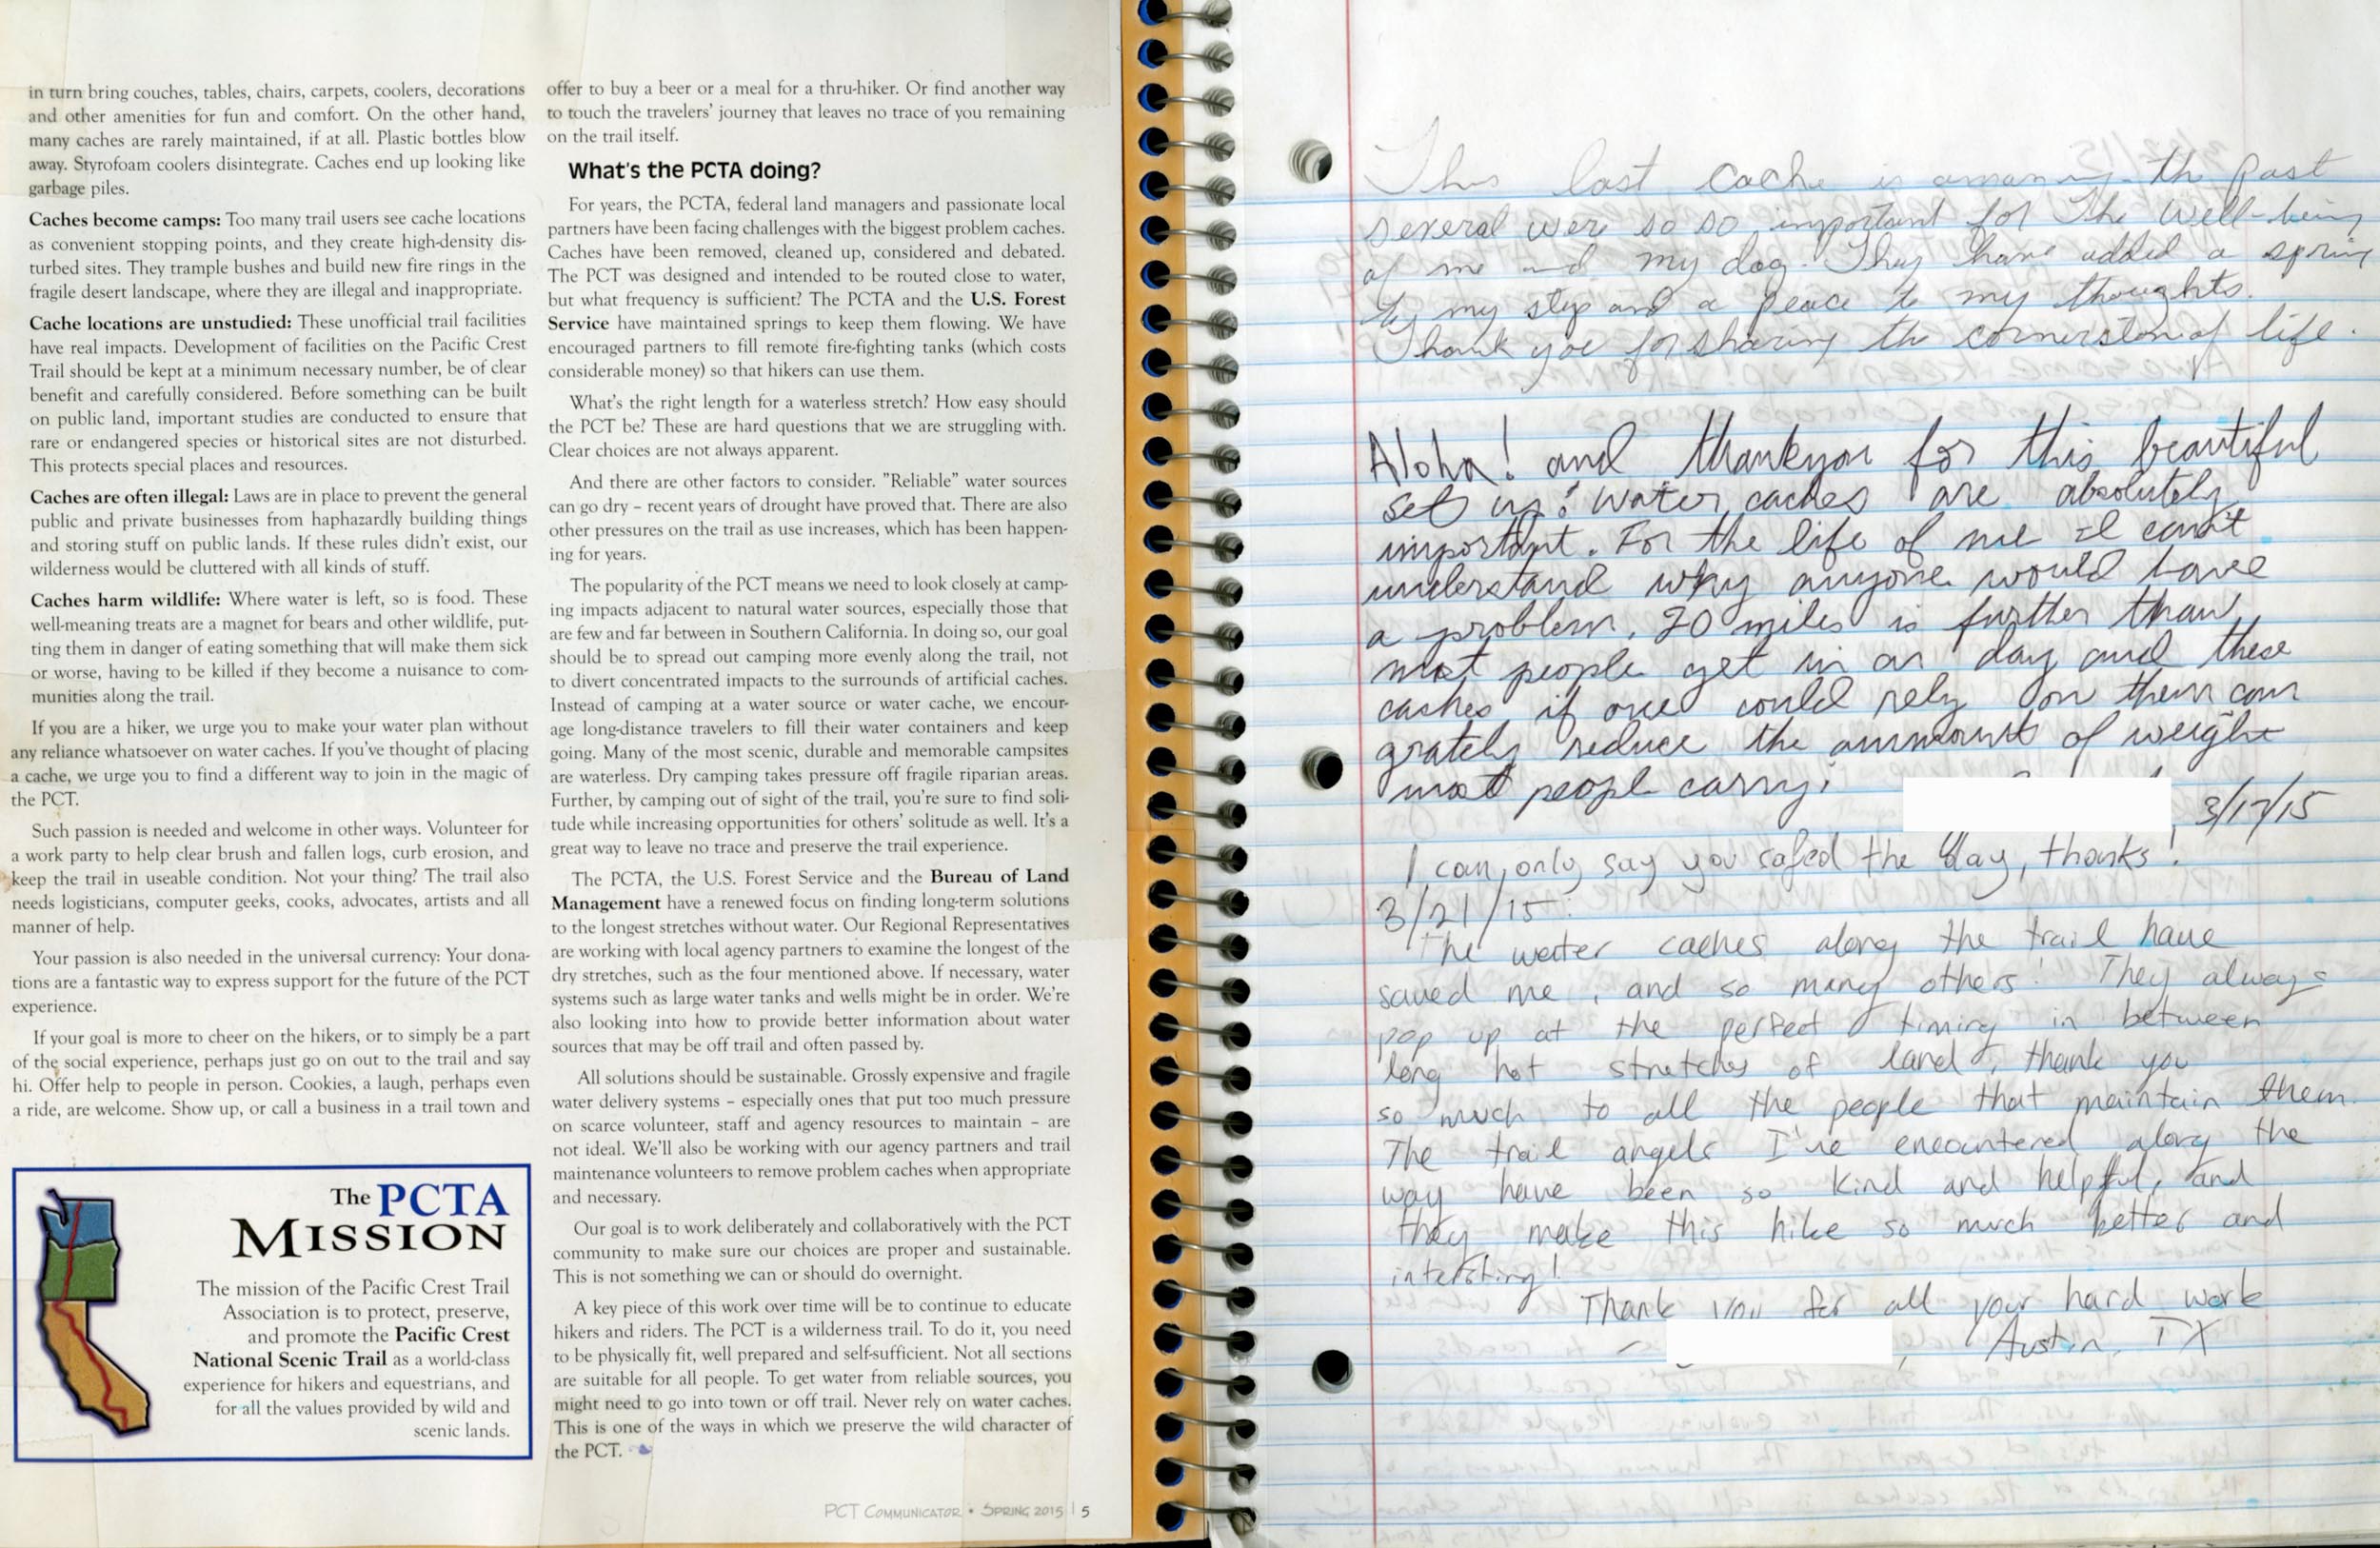 in turn bring couches, tables, chairs, carpets, coolers, decorations
and other amenities for fun and comfort. On the other hand,
many caches are rarely maintained, if at all. Plastic bottles blow
away. Styrofoam coolers disintegrate. Caches end up looking like
garbage piles.
Caches become camps: Too many trail users see cache locations
as convenient stopping points, and they create high-density dis-
turbed sites. They trample bushes and build new fire rings in the
fragile desert landscape, where they are illegal and inappropriate.
Cache locations are unstudied: These unofficial trail facilities
have real impacts. Development of facilities on the Pacific Crest
Trail should be kept at a minimum necessary number, be of clear
benefit and carefully considered. Before something can be built
on public land, important studies are conducted to ensure that
rare or endangered species or historical sites are not disturbed.
This protects special places and resources.
Caches are often illegal: Laws are in place to prevent the general
public and private businesses from haphazardly building things
and storing stuff on public lands. If these rules didn't exist, our
wilderness would be cluttered with all kinds of stuff.
Caches harm wildlife: Where water is left, so is food. These
well-meaning treats are a magnet for bears and other wildlife, put-
ting them in danger of eating something that will make them sick
or worse, having to be killed if they become a nuisance to com-
munities along the trail.
If you are a hiker, we urge you to make your water plan without
any reliance whatsoever on water caches. If you've thought of placing
a cache, we urge you to find a different way to join in the magic of
the PCT.
Such passion is needed and welcome in other ways. Volunteer for
a work party to help clear brush and fallen logs, curb erosion, and
keep the trail in useable condition. Not your thing? The trail also
needs logisticians, computer geeks, cooks, advocates, artists and all
manner of help.
Your passion is also needed in the universal currency: Your dona-
tions are a fantastic way to express support for the future of the PCT
experience.
If your goal is more to cheer on the hikers, or to simply be a part
of the social experience, perhaps just go on out to the trail and say
hi. Offer help to people in person. Cookies, a laugh, perhaps even
a ride, are welcome. Show up, or call a business in a trail town and
The PCTA
MISSION
The mission of the Pacific Crest Trail
Association is to protect, preserve,
and promote the Pacific Crest
National Scenic Trail as a world-class
experience for hikers and equestrians, and
for all the values provided by wild and
scenic lands.
offer to buy a beer or a meal for a thru-hiker. Or find another way
to touch the travelers' journey that leaves no trace of you remaining
on the trail itself.
What's the PCTA doing?
For years, the PCTA, federal land managers and passionate local
partners have been facing challenges with the biggest problem caches.
Caches have been removed, cleaned up, considered and debated.
The PCT was designed and intended to be routed close to water,
but what frequency is sufficient? The PCTA and the U.S. Forest
Service have maintained springs to keep them flowing. We have
encouraged partners to fill remote fire-fighting tanks (which costs
considerable money) so that hikers can use them.
What's the right length for a waterless stretch? How easy should
the PCT be? These are hard questions that we are struggling with.
Clear choices are not always apparent.
And there are other factors to consider. "Reliable" water sources
can go dry – recent years of drought have proved that. There are also
other pressures on the trail as use increases, which has been happen-
ing for years.
The popularity of the PCT means we need to look closely at camp-
ing impacts adjacent to natural water sources, especially those that
are few and far between in Southern California. In doing so, our goal
should be to spread out camping more evenly along the trail, not
to divert concentrated impacts to the surrounds of artificial caches.
Instead of camping at a water source or water cache, we encour-
age long-distance travelers to fill their water containers and keep
going. Many of the most scenic, durable and memorable campsites
are waterless. Dry camping takes pressure off fragile riparian areas.
Further, by camping out of sight of the trail, you're sure to find soli-
tude while increasing opportunities for others' solitude as well. It's a
great way to leave no trace and preserve the trail experience.
The PCTA, the U.S. Forest Service and the Bureau of Land
Management have a renewed focus on finding long-term solutions
to the longest stretches without water. Our Regional Representatives
are working with local agency partners to examine the longest of the
dry stretches, such as the four mentioned above. If necessary, water
systems such as large water tanks and wells might be in order. We're
also looking into how to provide better information about water
sources that may be off trail and often passed by.
All solutions should be sustainable. Grossly expensive and fragile
water delivery systems – especially ones that put too much pressure
on scarce volunteer, staff and agency resources to maintain – are
not ideal. We'll also be working with our agency partners and trail
maintenance volunteers to remove problem caches when appropriate
and necessary.
Our goal is to work deliberately and collaboratively with the PCT
community to make sure our choices are proper and sustainable.
This is not something we can or should do overnight.
A key piece of this work over time will be to continue to educate
hikers and riders. The PCT is a wilderness trail. To do it, you need
to be physically fit, well prepared and self-sufficient. Not all sections
are suitable for all people. To get water from reliable sources, you
might need to go into town or off trail. Never rely on water caches.
This is one of the ways in which we preserve the wild character of
the PCT.
PCT COMMUNICATOR • SPRING 2015 | 5
This last cache is amazing the past
several were so so important for The well-being
of me and my dog. They have added a spring
to my step and a peace to my thoughts.
Thank you for sharing the cornerston of life.
Aloha! and thankyou for this beautiful
set up! water caches are absolutely
important. For the life of me I can't
understand why anyone would have
a problem. 20 miles is further than
most people get in a day and these
caches if one could rely on them can
grately reduce the ammount of weight
most people carry!
3/17/15
I can only say you safed the day, thanks!
3/21/15:
The water caches along the trail have
saved me, and so many others! They always
pop up at the perfect timing in between
long hot stretches of land, thank you
so much to all the people that maintain them.
The trail angels I've encountered along the
way have been so kind and helpful, and
they make this hike so much better and
intersting!
Thank you for all your hard work
Austin, TX